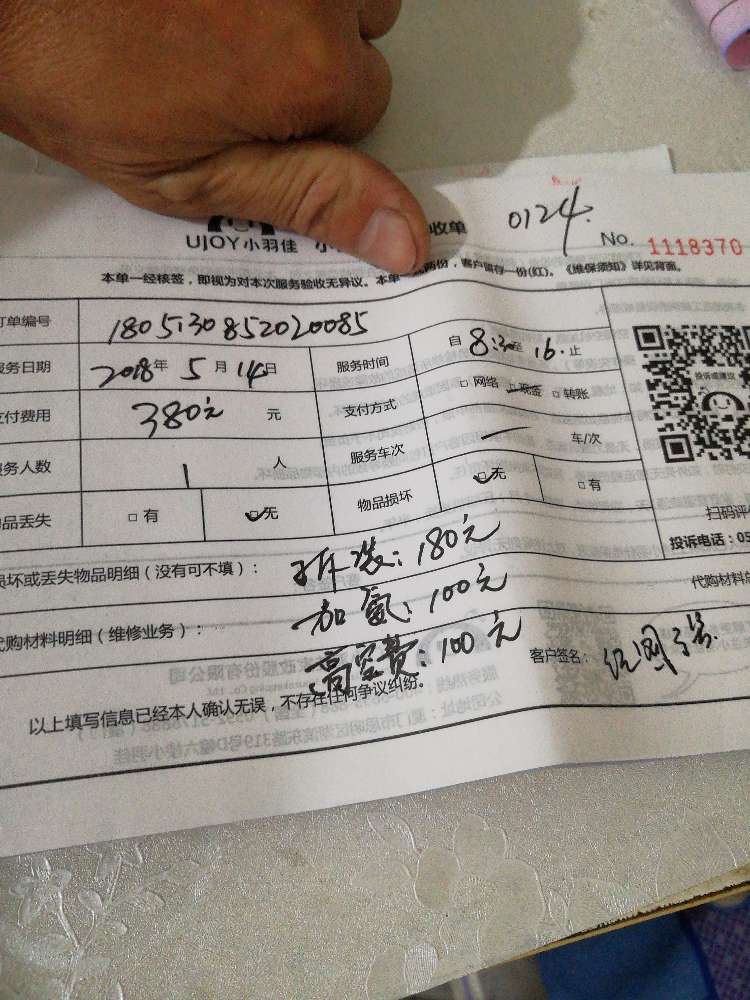 UJOY小羽佳 小 收单 0124.
No. 1118370
本单一经核签，即视为对本次服务验收无异议。本单 两份，客户留存一份(红)。《维保须知》详见背面。
订单编号 180513085202 0085
服务日期 2018年 5月 14日 服务时间 自 8:30 至 16. 止
支付费用 380元 元 支付方式 □ 网络 □ 现金 □ 转账
服务人数 1 人 服务车次 一 车/次
物品丢失 □ 有 □ 无 物品损坏 □ 无 □ 有
投诉或建议
扫码评
投诉电话：05
损坏或丢失物品明细（没有可不填）： 拆装：180元
代购材料明细（维修业务）： 加氨：100元
代购材料总
高空费：100元
客户签名：
以上填写信息已经本人确认无误，不存在任何争议纠纷。